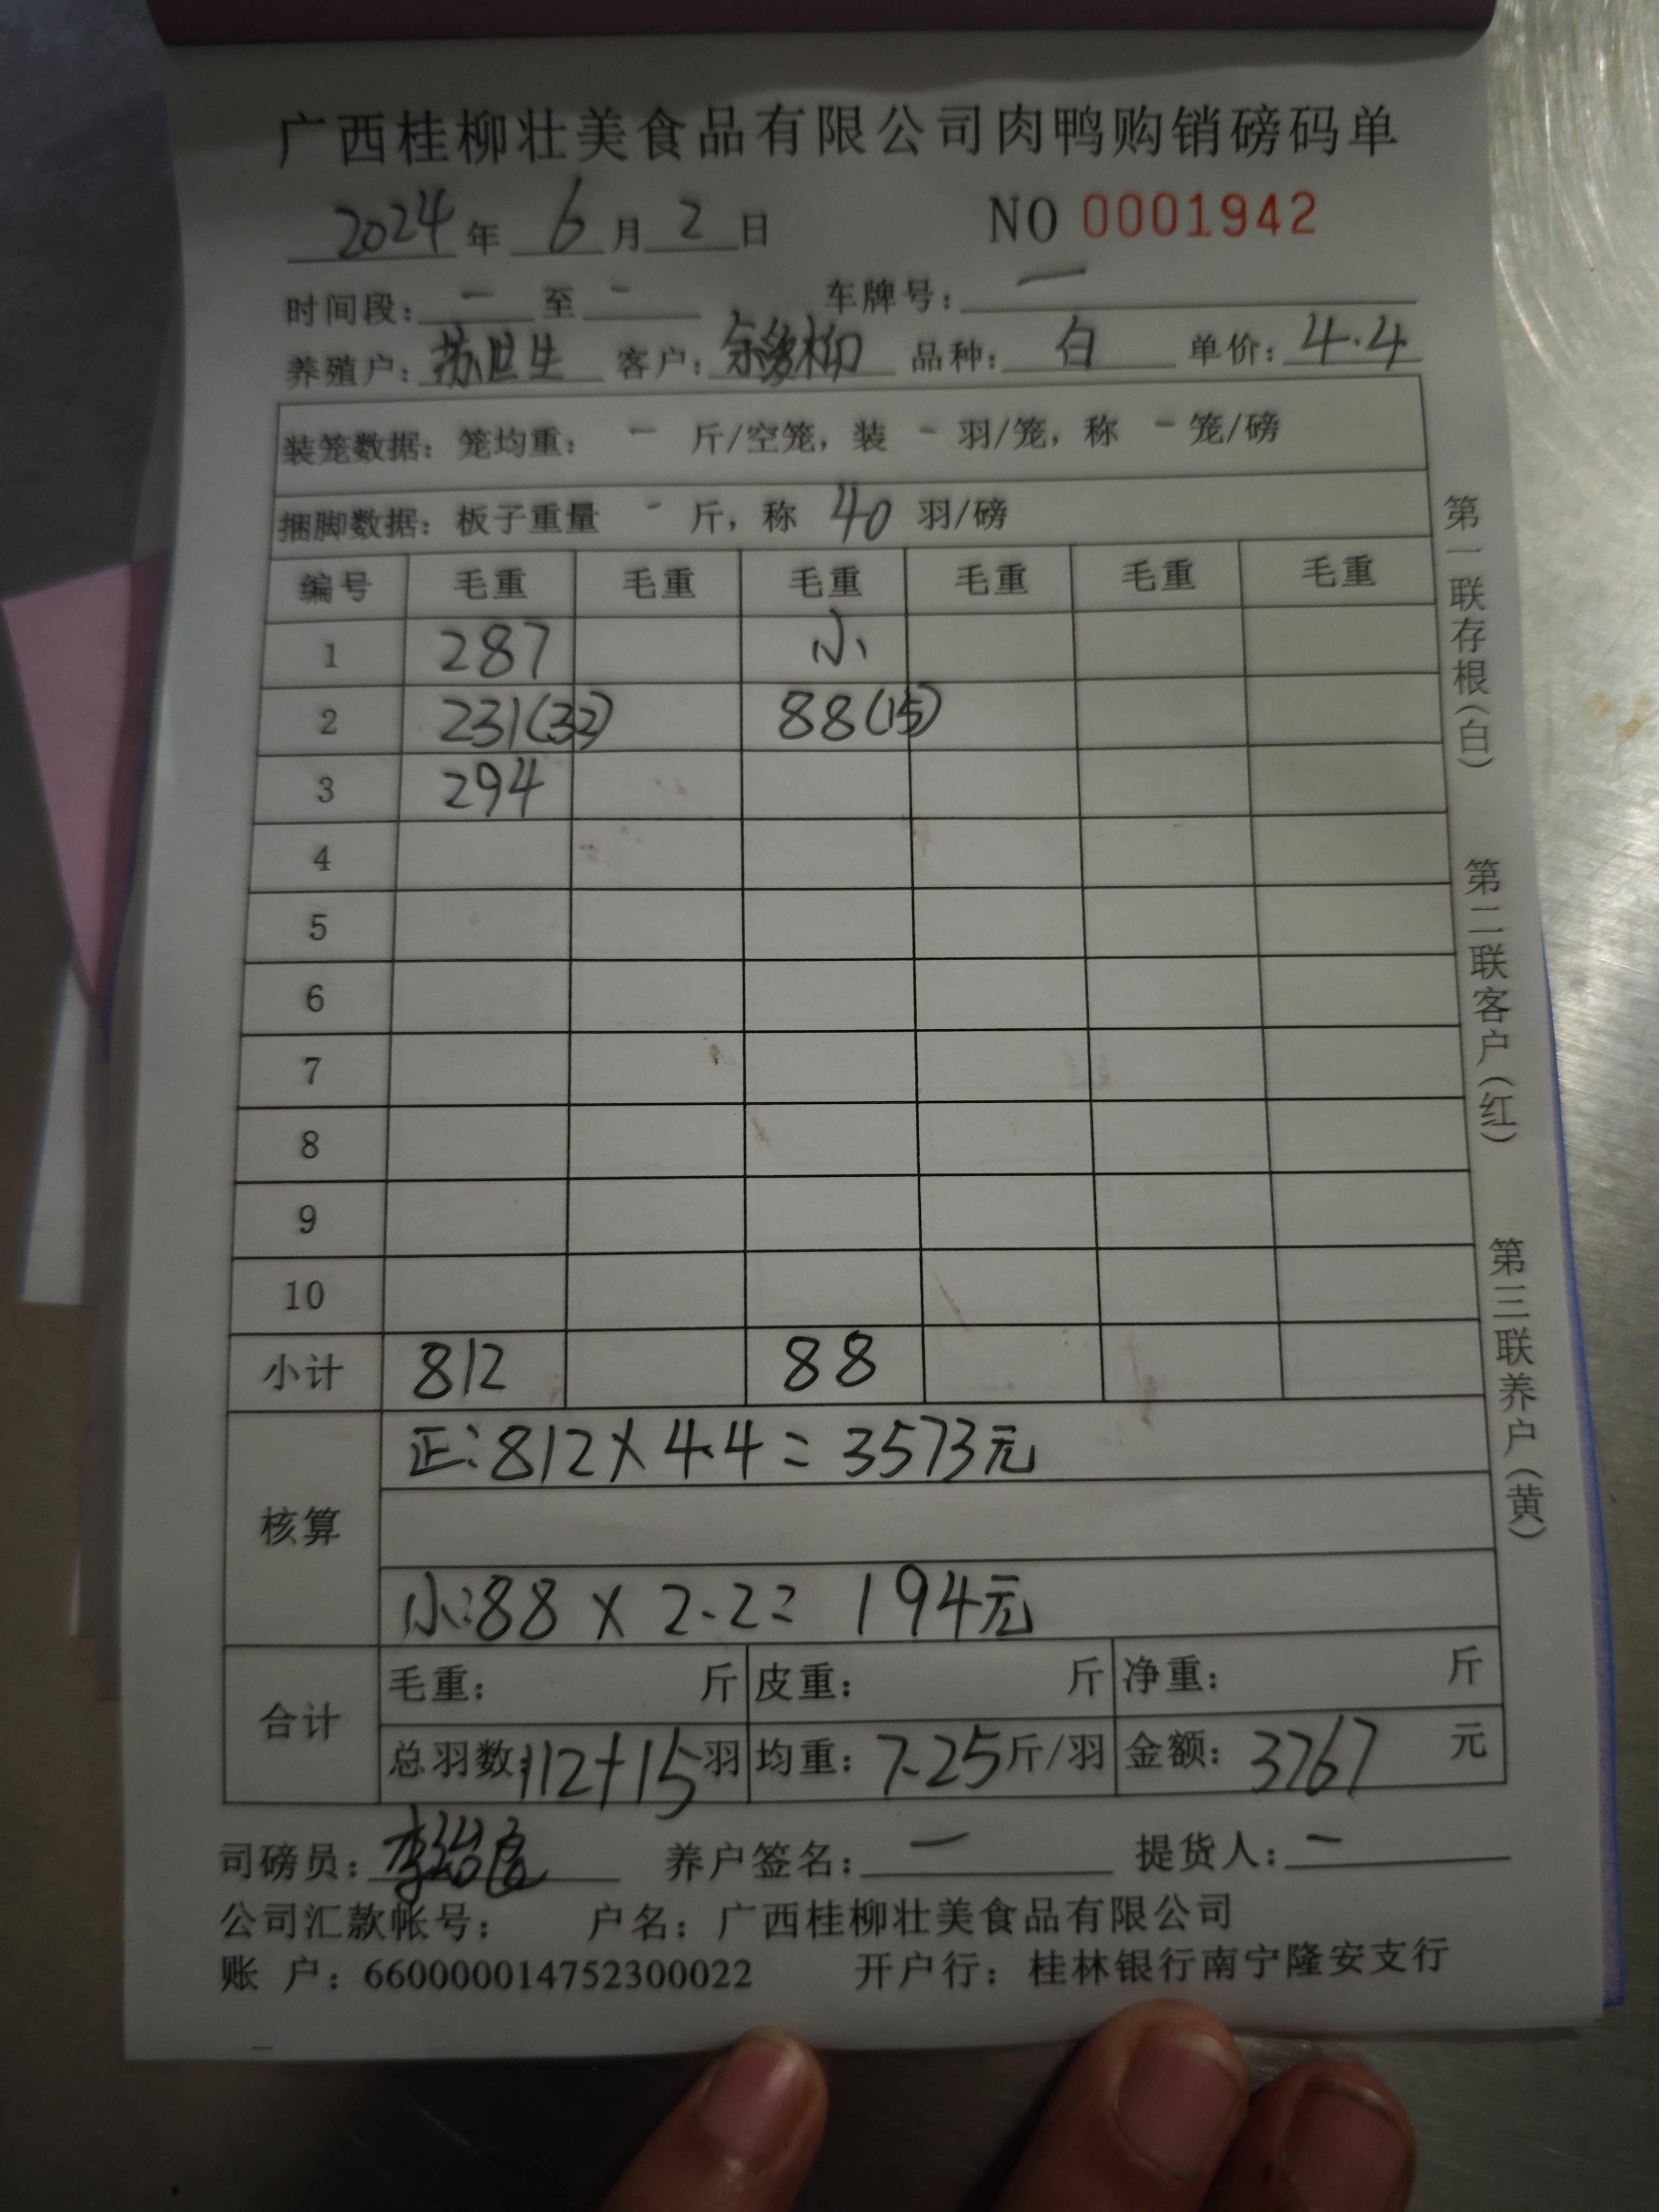 广西桂柳壮美食品有限公司肉鸭购销磅码单
2024年 6月2日 NO 0001942
时间段：一至- 车牌号：一
养殖户：苏世生 客户：柳 品种：白 单价：4.4
装笼数据：笼均重：- 斤/空笼，装 - 羽/笼，称 - 笼/磅
捆脚数据：板子重量 - 斤，称 40 羽/磅
编号 毛重 毛重 毛重 毛重 毛重 毛重
1 287 小
2 231(32) 88(15)
3 294
4
5
6
7
8
9
10
小计 812 88
核算
正：812×4.4=3573元
小：88×2.2=194元
合计
毛重： 斤 皮重： 斤 净重： 斤
总羽数：112+15羽 均重：7.25斤/羽 金额：3767 元
司磅员：李 养户签名：一 提货人：一
公司汇款帐号： 户名：广西桂柳壮美食品有限公司
账 户：660000014752300022 开户行：桂林银行南宁隆安支行
第一联存根（白）
第二联客户（红）
第三联养户（黄）